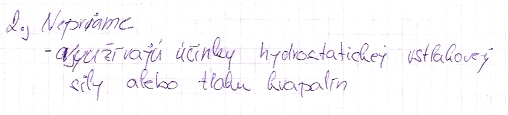 2.) Nepriame
- využívajú účinky hydrostatickej vztlakovej
sily alebo tlaku kvapalín